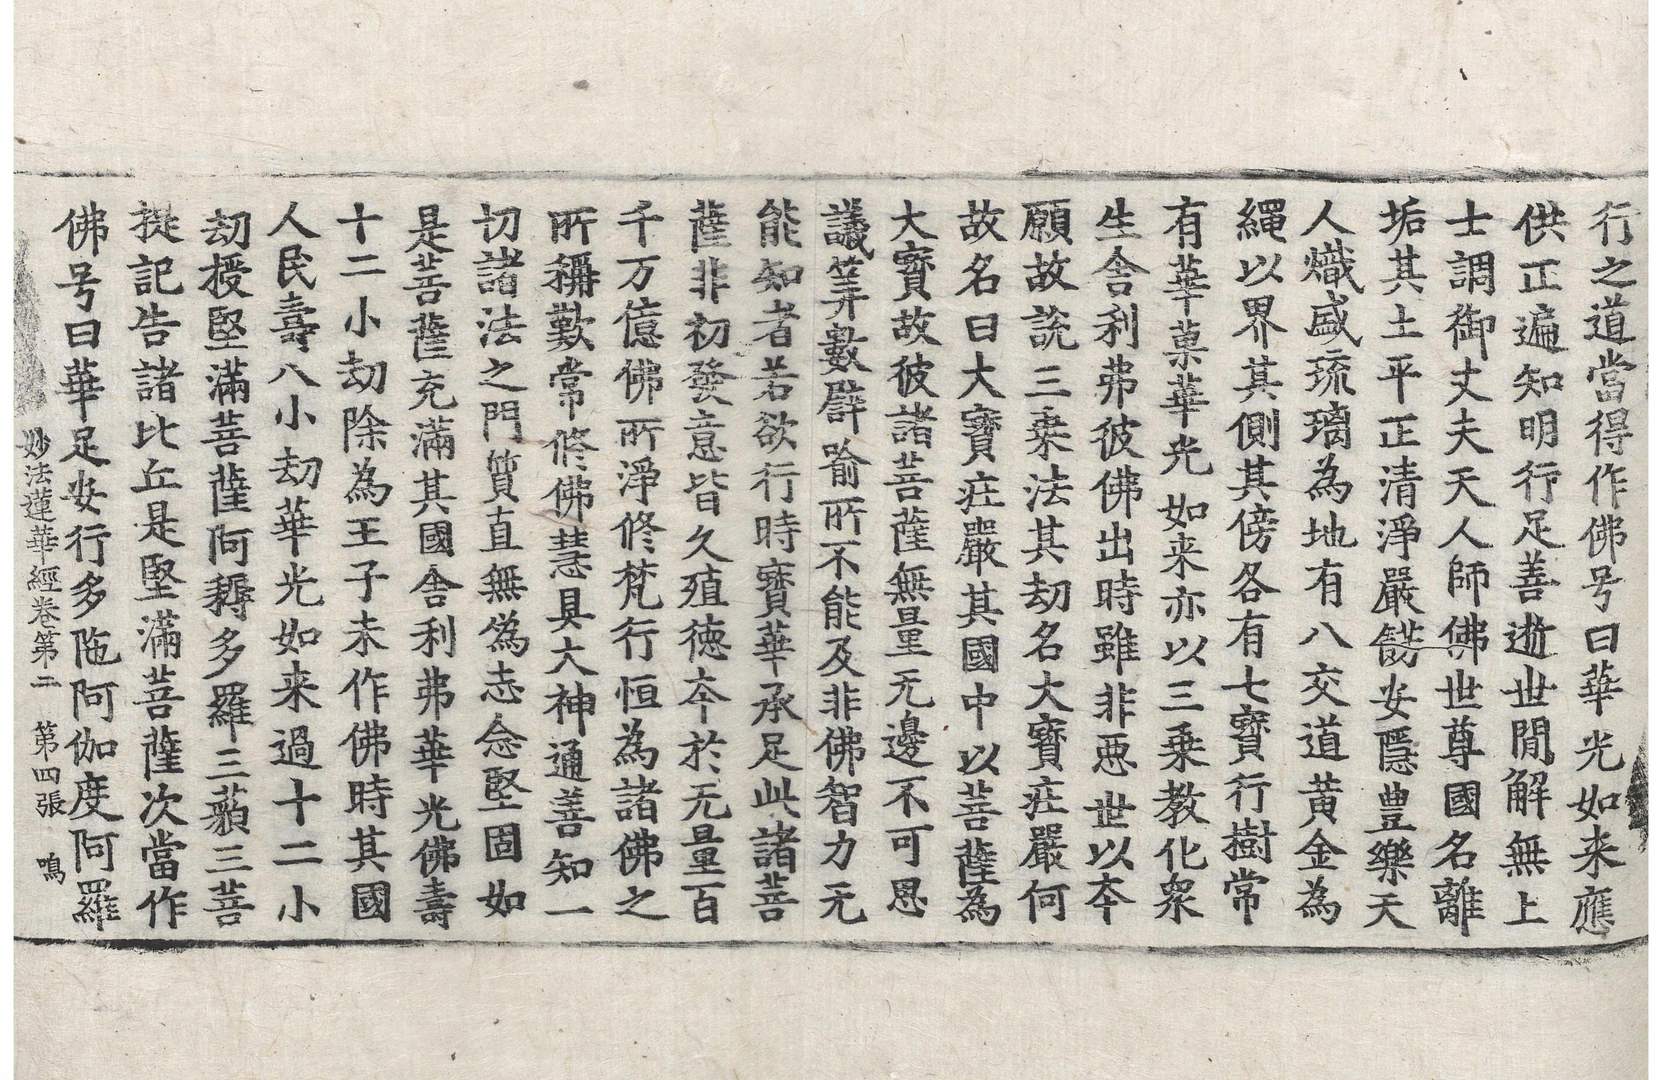 行之道當得作佛号曰華光如来應
供正遍知明行足善逝世閒解無上
士調御丈夫天人師佛世尊國名離
垢其土平正清淨嚴餝安隱豊樂天
人熾盛琉璃為地有八交道黃金為
繩以界其側其傍各有七寶行樹常
有華菓華光如来亦以三乗教化衆
生舎利弗彼佛出時雖非悪世以夲
願故說三乗法其劫名大寶疘嚴何
故名曰大寶疘嚴其國中以菩薩為
大寶故彼諸菩薩無量无邊不可思
議筭數譬喻所不能及非佛智力无
能知者若欲行時寶華承足此諸菩
薩非初發意皆久殖徳夲於无量百
千万億佛所淨修梵行恒為諸佛之
所稱歎常修佛慧具大神通善知一
切諸法之門質直無偽志念堅固如
是菩薩充滿其國舎利弗華光佛壽
十二小劫除為王子未作佛時其國
人民壽八小劫華光如来過十二小
劫授堅滿菩薩阿耨多羅三藐三菩
提記告諸比丘是堅滿菩薩次當作
佛号曰華足安行多陁阿伽度阿羅
妙法蓮華經卷第二 第四張 鳴